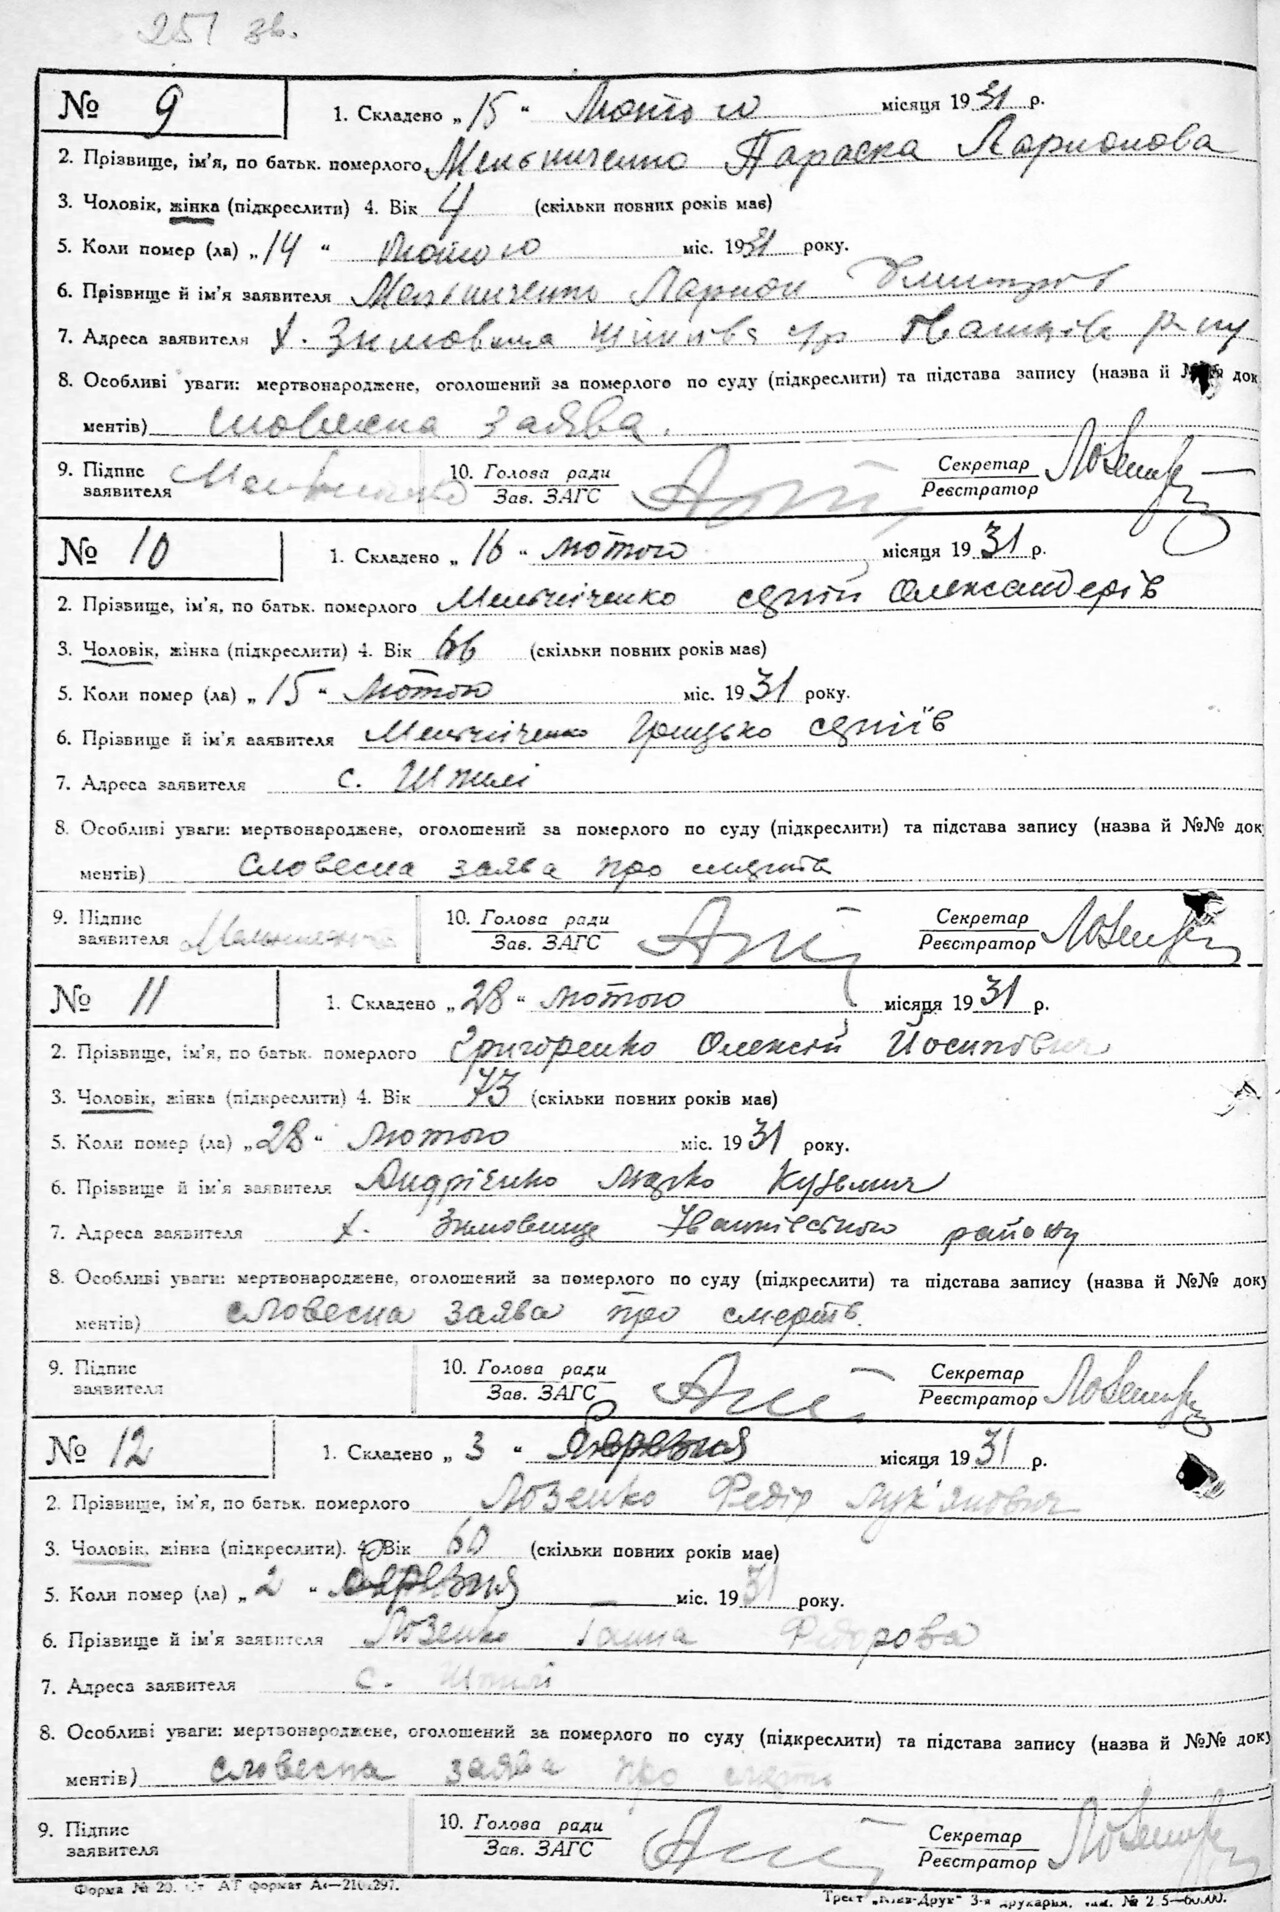 251 зв.
№ 9 1. Складено „ 15 “ Лютого місяця 1931 р.
2. Прізвище, ім’я, по батьк. померлого Мельниченко Параска Ларионова
3. Чоловік, жінка (підкреслити) 4. Вік 4 (скільки повних років має)
5. Коли помер (ла) „ 14 “ Лютого міс. 1931 року.
6. Прізвище й ім’я заявителя Мельниченко Ларион Дмитров
7. Адреса заявителя х. Зимовища
8. Особливі уваги: мертвонароджене, оголошений за померлого по суду (підкреслити) та підстава запису (назва й №№ док
ментів) словесна заява.
9. Підпис заявителя Мельниченко 10. Голова ради Зав. ЗАГС Секретар Реєстратор
№ 10 1. Складено „ 16 “ лютого місяця 1931 р.
2. Прізвище, ім’я, по батьк. померлого Мельниченко Олександерів
3. Чоловік, жінка (підкреслити) 4. Вік 66 (скільки повних років має)
5. Коли помер (ла) „ 15 “ лютого міс. 1931 року.
6. Прізвище й ім’я заявителя Мельниченко Грицько
7. Адреса заявителя с. Шпилі
8. Особливі уваги: мертвонароджене, оголошений за померлого по суду (підкреслити) та підстава запису (назва й №№ док
ментів) словесна заява про смерть
9. Підпис заявителя Мельниченко 10. Голова ради Зав. ЗАГС Секретар Реєстратор
№ 11 1. Складено „ 28 “ лютого місяця 1931 р.
2. Прізвище, ім’я, по батьк. померлого Григоренко Олексій Йосипович
3. Чоловік, жінка (підкреслити) 4. Вік 73 (скільки повних років має)
5. Коли помер (ла) „ 28 “ лютого міс. 1931 року.
6. Прізвище й ім’я заявителя Андрієнко Марко Кузьмич
7. Адреса заявителя х. Зимовище Іванківського району
8. Особливі уваги: мертвонароджене, оголошений за померлого по суду (підкреслити) та підстава запису (назва й №№ доку
ментів) словесна заява про смерть.
9. Підпис заявителя 10. Голова ради Зав. ЗАГС Секретар Реєстратор
№ 12 1. Складено „ 3 “ березня місяця 1931 р.
2. Прізвище, ім’я, по батьк. померлого Лозенко Федір Лук’янович
3. Чоловік, жінка (підкреслити). 4. Вік 60 (скільки повних років має)
5. Коли помер (ла) „ 2 “ березня міс. 1931 року.
6. Прізвище й ім’я заявителя Лозенко Ганна Федорова
7. Адреса заявителя с. Шпилі
8. Особливі уваги: мертвонароджене, оголошений за померлого по суду (підкреслити) та підстава запису (назва й №№ доку
ментів) словесна заява про смерть
9. Підпис заявителя 10. Голова ради Зав. ЗАГС Секретар Реєстратор
Форма № 20. формат А₄—210x297. Трест „Київ-Друк“ 3-я друкарня.